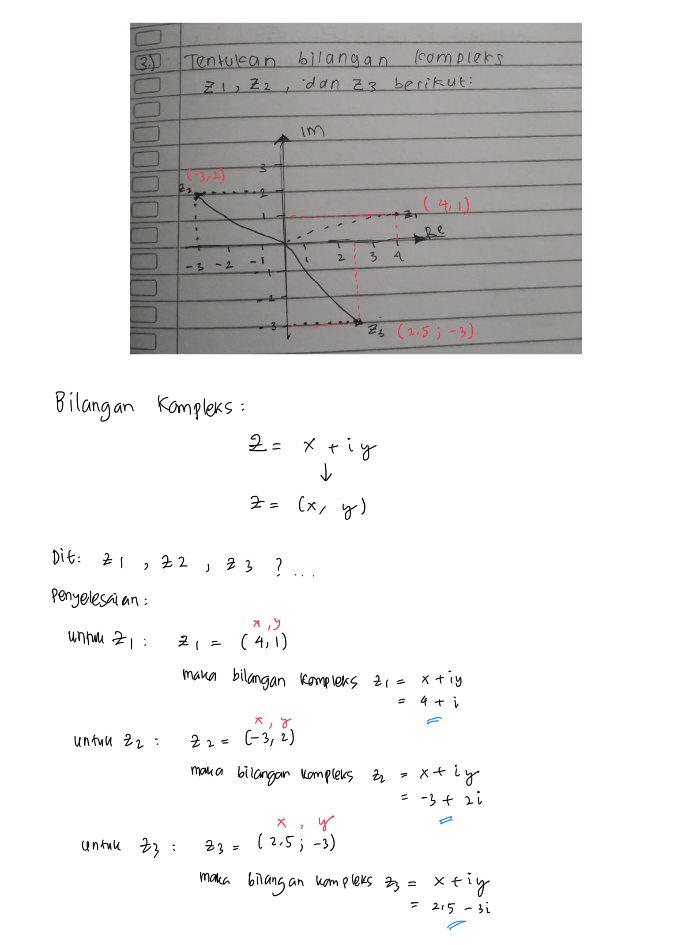 (3) Tentukan bilangan kompleks
z1, z2, dan z3 berikut:
IM
3
(-3,2)
z2
2
1
z1
(4,1)
Re
-3 -2 -1 1 2 3 4
-1
-2
-3
z3 (2,5 ; -3)
Bilangan Kompleks:
z = x + iy
↓
z = (x, y)
Dit: z1, z2, z3 ? ...
Penyelesaian:
x, y
untuk z1: z1 = (4,1)
maka bilangan kompleks z1 = x + iy
= 4 + i
x, y
untuk z2: z2 = (-3, 2)
maka bilangan kompleks z2 = x + iy
= -3 + 2i
x, y
untuk z3: z3 = (2,5 ; -3)
maka bilangan kompleks z3 = x + iy
= 2,5 - 3i